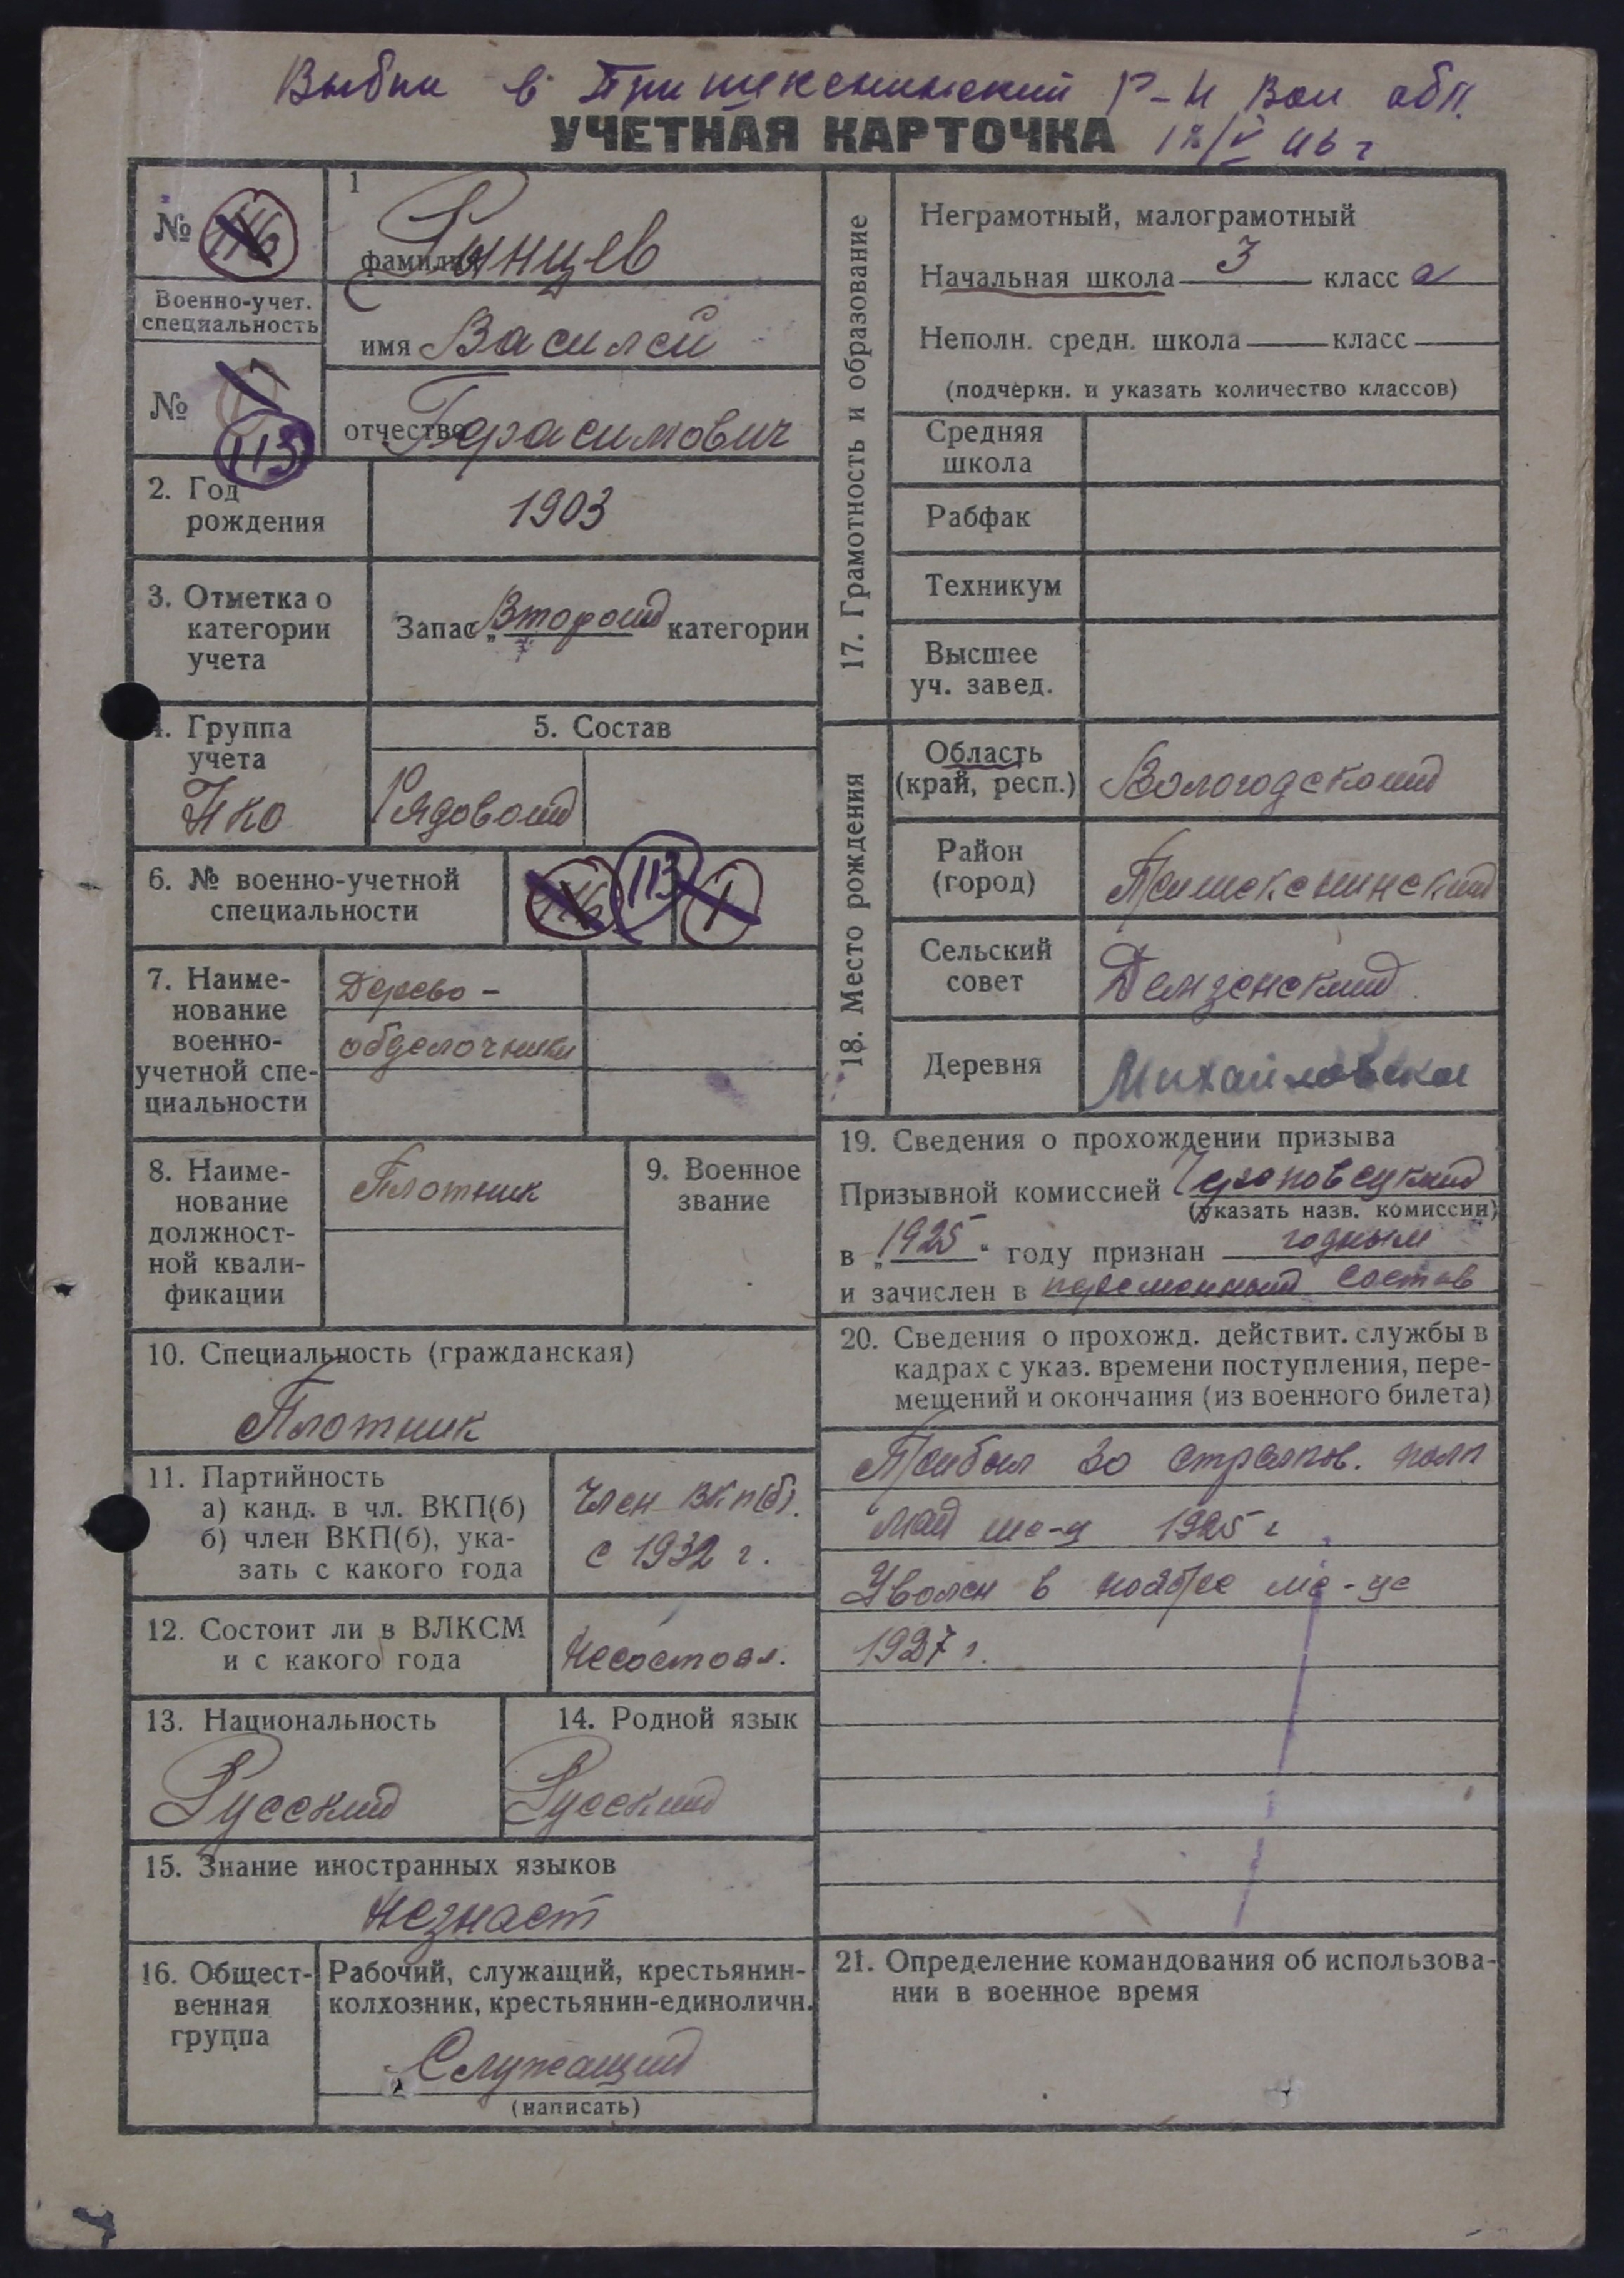 Выбыл в Пришекснинский р-н Вол обл.
УЧЕТНАЯ КАРТОЧКА
12/V 46 г
№ 116
1
фамилия Рынцев
Военно-учет.
специальность
имя Василей
№ 1
113
отчество Герасимович
2. Год
рождения
1903
3. Отметка о
категории
учета
Запас „Второй категории
4. Группа
учета
НКО
5. Состав
Рядовой
6. № военно-учетной
специальности
116 113 1
7. Наиме-
нование
военно-
учетной спе-
циальности
Дерево-
обделочники
8. Наиме-
нование
должност-
ной квали-
фикации
Плотник
9. Военное
звание
10. Специальность (гражданская)
Плотник
11. Партийность
а) канд. в чл. ВКП(б)
б) член ВКП(б), ука-
зать с какого года
Член ВКП(б).
с 1932 г.
12. Состоит ли в ВЛКСМ
и с какого года
Несостоял.
13. Национальность
Русский
14. Родной язык
Русский
15. Знание иностранных языков
Незнает
16. Общест-
венная
группа
Рабочий, служащий, крестьянин-
колхозник, крестьянин-единоличн.
Служащий
(написать)
17. Грамотность и образование
Неграмотный, малограмотный
Начальная школа 3 класс а
Неполн. средн. школа класс
(подчеркн. и указать количество классов)
Средняя
школа
Рабфак
Техникум
Высшее
уч. завед.
18. Место рождения
Область
(край, респ.)
Вологодской
Район
(город)
Пришекснинский
Сельский
совет
Деревня
Михайловское
19. Сведения о прохождении призыва
Призывной комиссией Череповецкий
(указать назв. комиссии)
в „1925" году признан годным
и зачислен в переменный состав
20. Сведения о прохожд. действит. службы в
кадрах с указ. времени поступления, пере-
мещений и окончания (из военного билета)
Прибыл 30 полк
май ме-ц 1925 г
Уволен в ноябре ме-це
1927 г.
21. Определение командования об использова-
нии в военное время